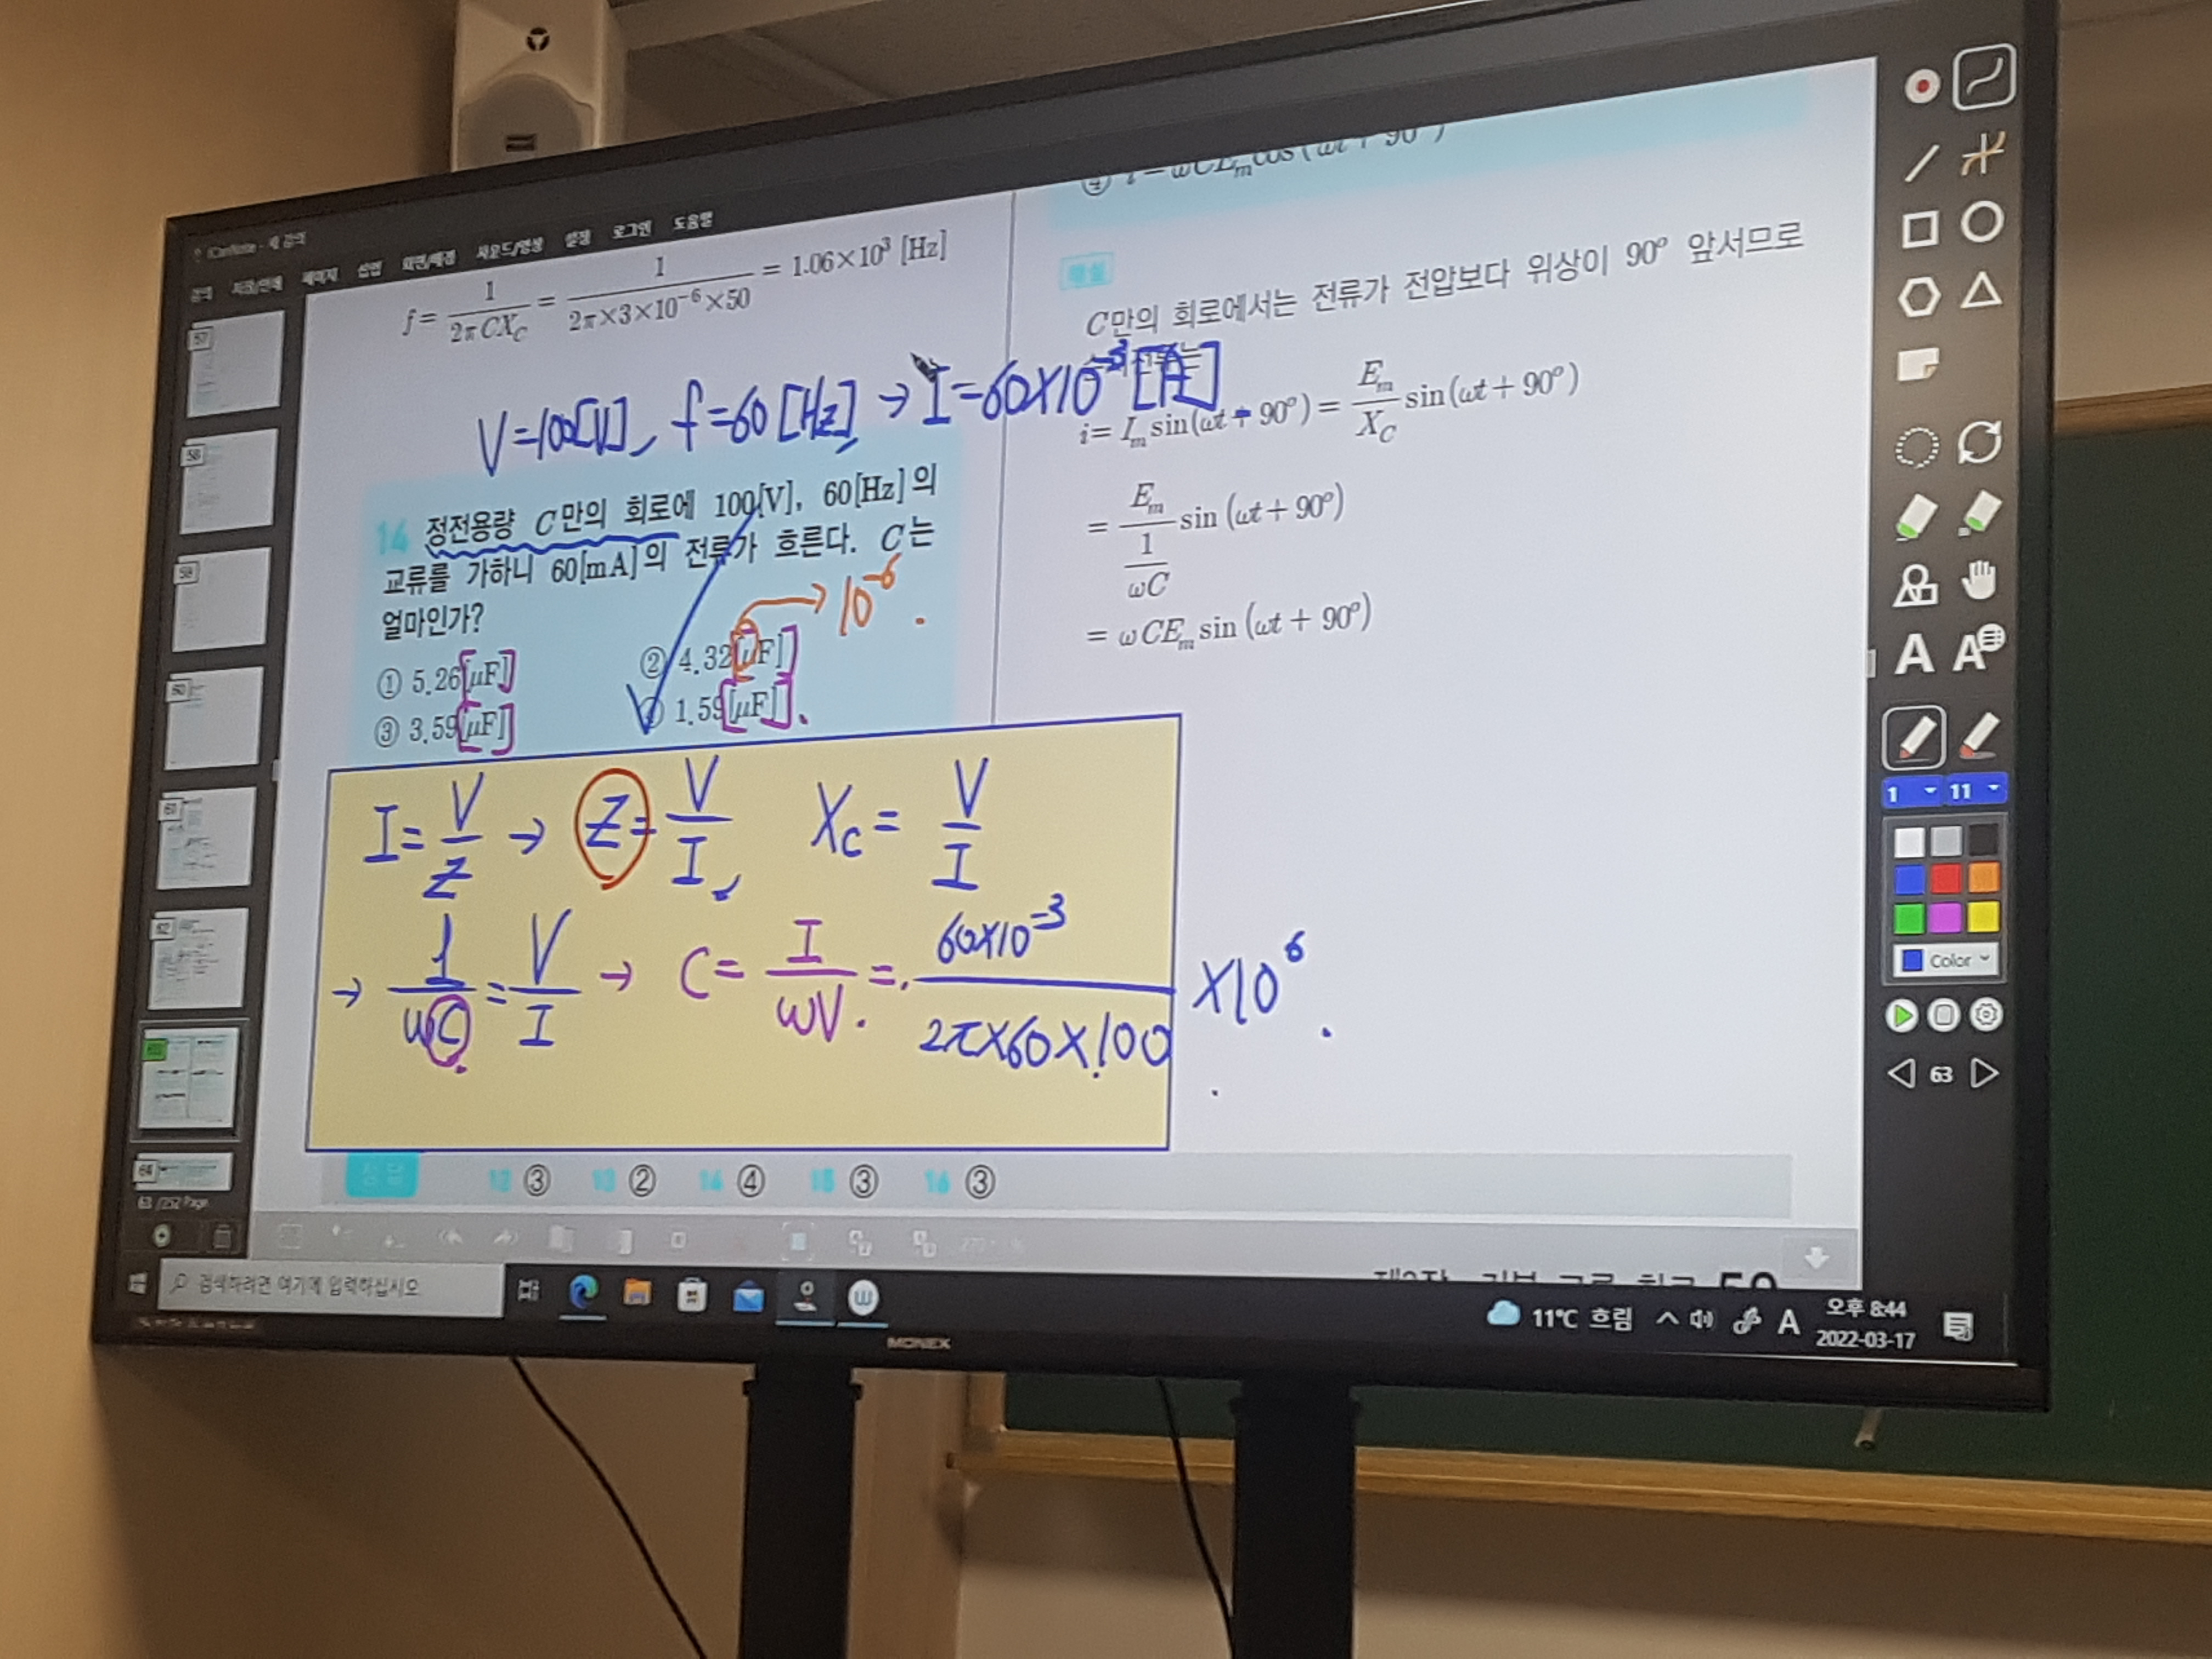 f = 1/2πCX_C = 1/2π×3×10⁻⁶×50 = 1.06×10³ [Hz]
V=100[V], f=60[Hz] → I=60×10⁻³[A]
14 정전용량 C만의 회로에 100[V], 60[Hz]의
교류를 가하니 60[mA]의 전류가 흐른다. C는
얼마인가?
→ 10⁻⁶.
① 5.26[μF] ② 4.32[μF]
③ 3.59[μF] 1.59[μF]
I = V/Z → Z = V/I, X_C = V/I
→ 1/ωC = V/I → C = I/ωV. = 60×10⁻³/2π×60×100 ×10⁶.
정답 12 ③ 13 ② 14 ④ 15 ③ 16 ③
해설
C만의 회로에서는 전류가 전압보다 위상이 90° 앞서므로
i = I_m sin(ωt + 90°) = E_m/X_C sin(ωt + 90°)
= E_m/(1/ωC) sin (ωt + 90°)
= ωCE_m sin (ωt + 90°)
로그인 도움말
57
58
59
60
61
62
64
63 /252 Page
1 11
Color
63
검색하려면 여기에 입력하십시오.
11℃ 흐림
A
오후 8:44
2022-03-17
MONEX